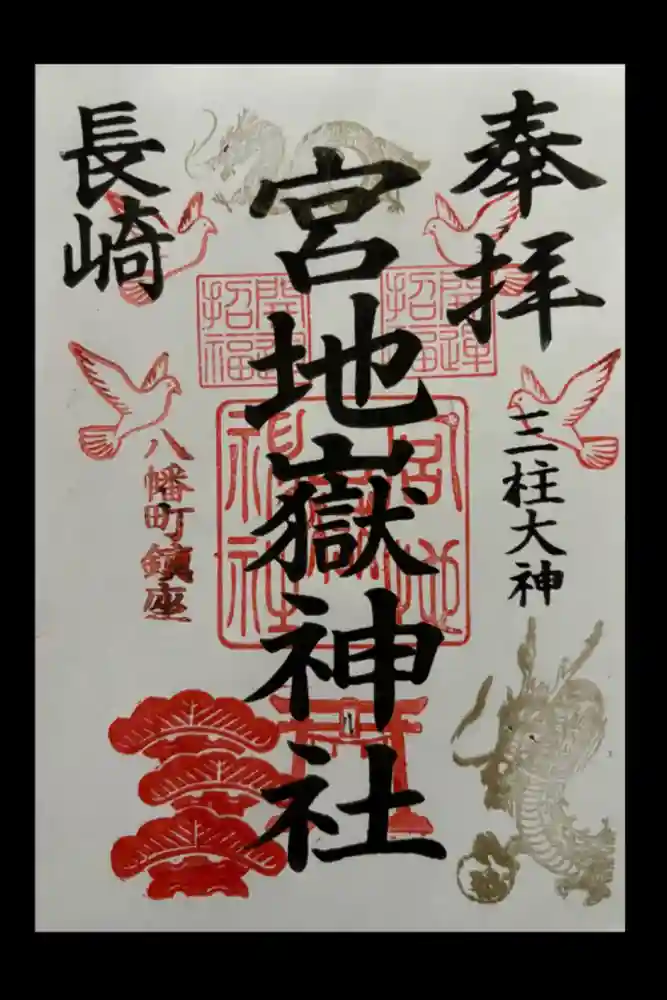 奉拝
三柱大神
宮地嶽神社
開運
招福
開運
招福
宮地嶽
神社
長崎
八幡町鎮座